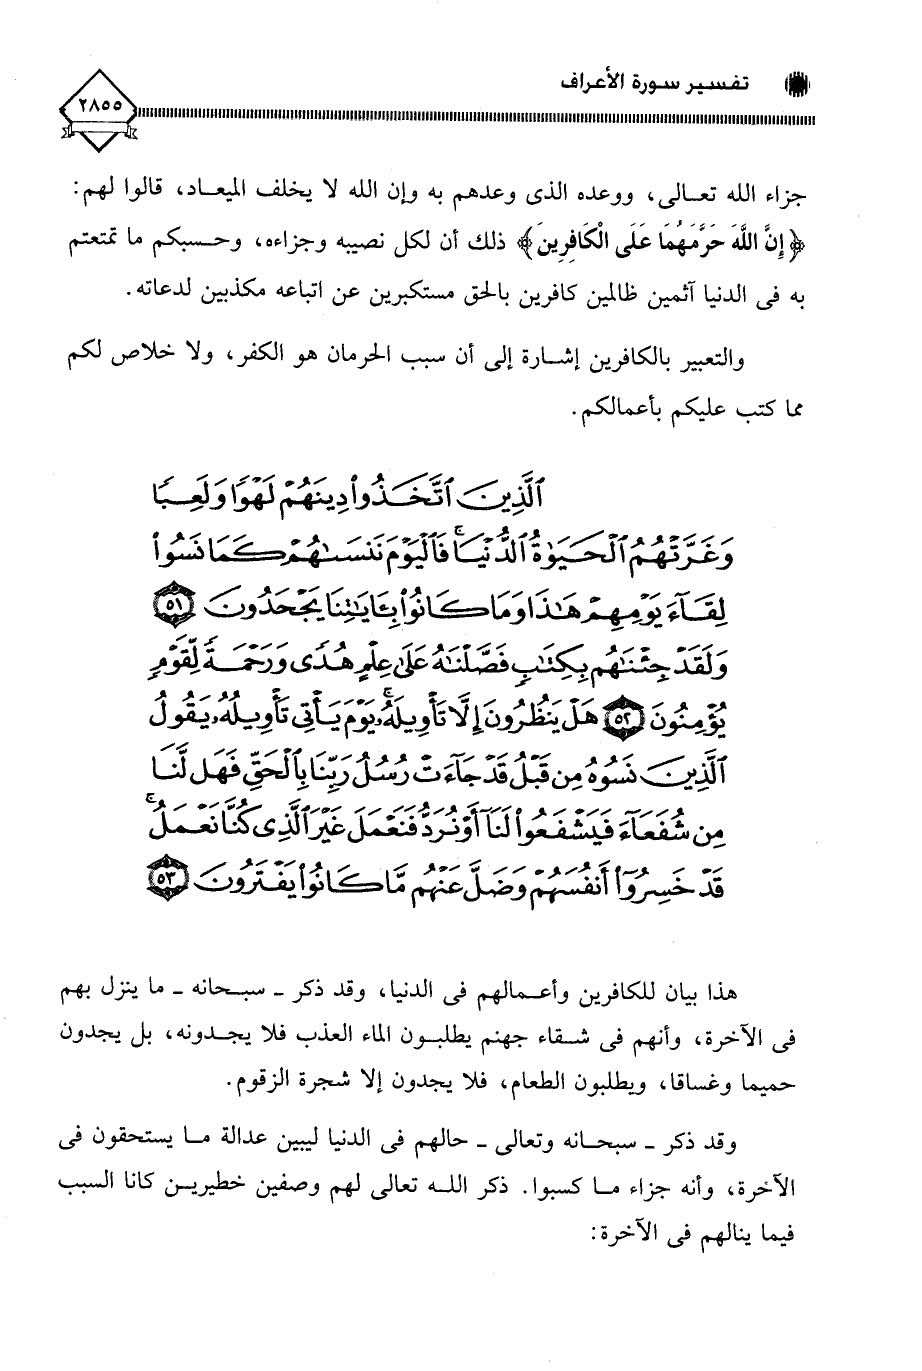 تفسير سورة الأعراف
٢٨٥٥
جزاء الله تعالى، ووعده الذى وعدهم به وإن الله لا يخلف الميعاد، قالوا لهم:
﴿إِنَّ اللَّهَ حَرَّمَهُمَا عَلَى الْكَافِرِينَ﴾ ذلك أن لكل نصيبه وجزاءه، وحسبكم ما تمتعتم
به فى الدنيا آثمين ظالمين كافرين بالحق مستكبرين عن اتباعه مكذبين لدعاته.
والتعبير بالكافرين إشارة إلى أن سبب الحرمان هو الكفر، ولا خلاص لكم
مما كتب عليكم بأعمالكم.
ٱلَّذِينَ ٱتَّخَذُوا۟ دِينَهُمْ لَهْوًا وَلَعِبًا
وَغَرَّتْهُمُ ٱلْحَيَوٰةُ ٱلدُّنْيَا ۚ فَٱلْيَوْمَ نَنسَىٰهُمْ كَمَا نَسُوا۟
لِقَآءَ يَوْمِهِمْ هَٰذَا وَمَا كَانُوا۟ بِـَٔايَٰتِنَا يَجْحَدُونَ ٥١
وَلَقَدْ جِئْنَٰهُم بِكِتَٰبٍ فَصَّلْنَٰهُ عَلَىٰ عِلْمٍ هُدًى وَرَحْمَةً لِّقَوْمٍ
يُؤْمِنُونَ ٥٢ هَلْ يَنظُرُونَ إِلَّا تَأْوِيلَهُۥ ۚ يَوْمَ يَأْتِى تَأْوِيلُهُۥ يَقُولُ
ٱلَّذِينَ نَسُوهُ مِن قَبْلُ قَدْ جَآءَتْ رُسُلُ رَبِّنَا بِٱلْحَقِّ فَهَل لَّنَا
مِن شُفَعَآءَ فَيَشْفَعُوا۟ لَنَآ أَوْ نُرَدُّ فَنَعْمَلَ غَيْرَ ٱلَّذِى كُنَّا نَعْمَلُ ۚ
قَدْ خَسِرُوٓا۟ أَنفُسَهُمْ وَضَلَّ عَنْهُم مَّا كَانُوا۟ يَفْتَرُونَ ٥٣
هذا بيان للكافرين وأعمالهم فى الدنيا، وقد ذكر ـ سبحانه ـ ما ينزل بهم
فى الآخرة، وأنهم فى شقاء جهنم يطلبون الماء العذب فلا يجدونه، بل يجدون
حميما وغساقا، ويطلبون الطعام، فلا يجدون إلا شجرة الزقوم.
وقد ذكر ـ سبحانه وتعالى ـ حالهم فى الدنيا ليبين عدالة ما يستحقون فى
الآخرة، وأنه جزاء ما كسبوا. ذكر الله تعالى لهم وصفين خطيرين كانا السبب
فيما ينالهم فى الآخرة: